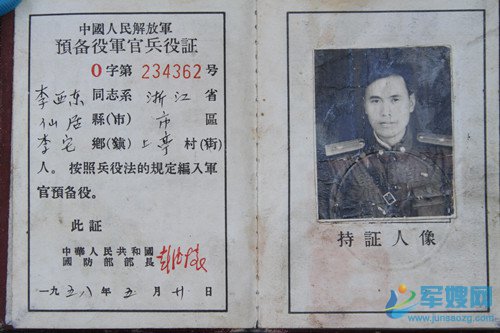 中國人民解放軍
預备役軍官兵役証
0字第 234362 号
李西东同志系浙江省
仙居縣(市)市區
李宅鄉(鎮)上亭村(街)
人。按照兵役法的規定編入軍
官預备役。
此証
中華人民共和國
國防部部長 彭德懷
一九五八年五月廿日
持証人像
军嫂网
www.junsaozg.com